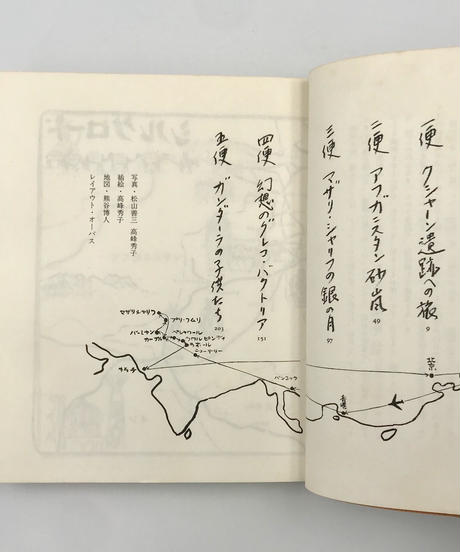 一便 クシャーン遺跡への旅 9
二便 アフガニスタン砂嵐 49
三便 マザリ・シャリフの銀の月 97
四便 幻想のグレコ・バクトリア 151
五便 ガンダーラの子供たち 203
写真・松山善三 高峰秀子
挿絵・高峰秀子
地図・熊谷博人
レイアウト・オーパス
マザリシャリフ
プリ・フムリ
バーミヤン
カーブル
ペシャワール
ラワルピンディ
ラホール
ニューデリー
カラチ
バンコック
香港
シルクロード